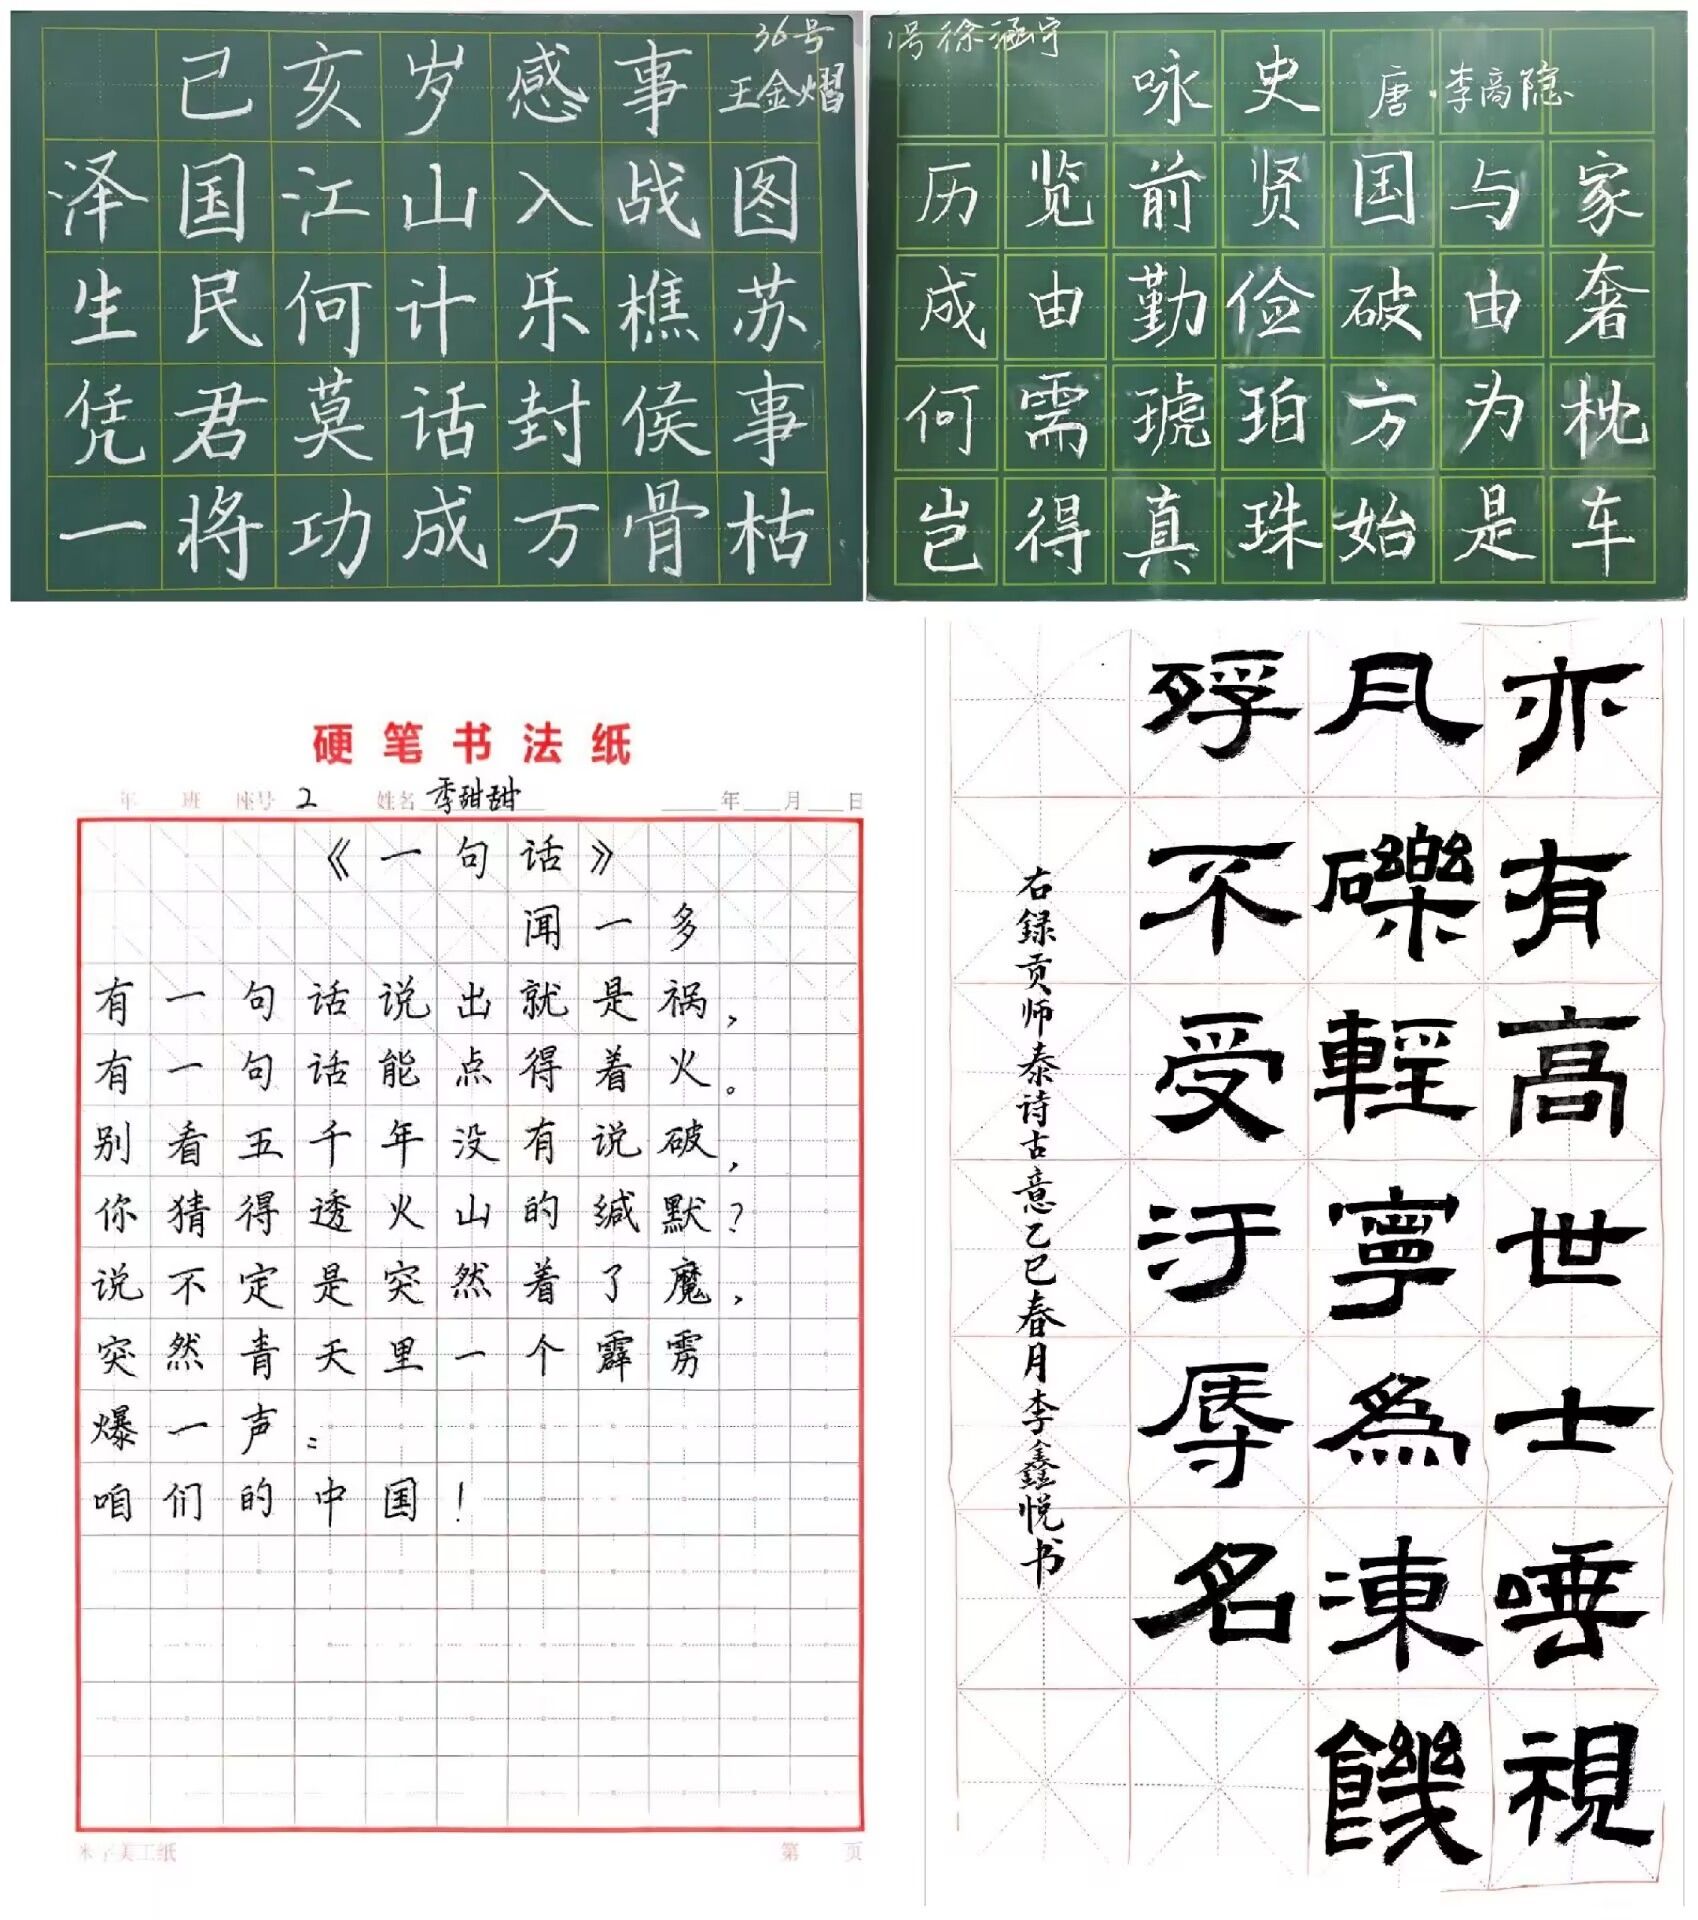 36号
己亥岁感事
王金熠
泽国江山入战图
生民何计乐樵苏
凭君莫话封侯事
一将功成万骨枯
1号徐涵宇
咏史 唐·李商隐
历览前贤国与家
成由勤俭破由奢
何需琥珀方为枕
岂得真珠始是车
硬笔书法纸
年 班 座号 2 姓名 季甜甜 年 月 日
《一句话》
闻一多
有一句话说出就是祸，
有一句话能点得着火。
别看五千年没有说破，
你猜得透火山的缄默？
说不定是突然着了魔，
突然青天里一个霹雳
爆一声：
咱们的中国！
米字美工纸 第 页
亦有高世士唾視
凡礫輕寧為凍饑
殍不受汙辱名
右録贡师泰诗古意乙巳春月李鑫悦书